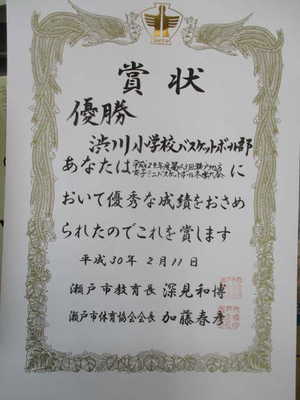 賞状
優勝
渋川小学校バスケットボール部
あなたは
女子ミニバスケットボール冬季大会に
おいて優秀な成績をおさめ
られたのでこれを賞します
平成30年2月11日
瀬戸市教育長 深見和博
瀬戸市体育協会会長 加藤春彦